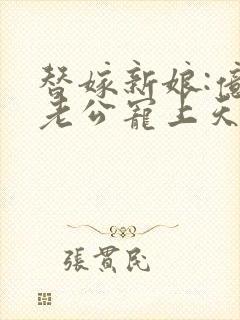 替嫁新娘:億
老公寵上天
張貫民